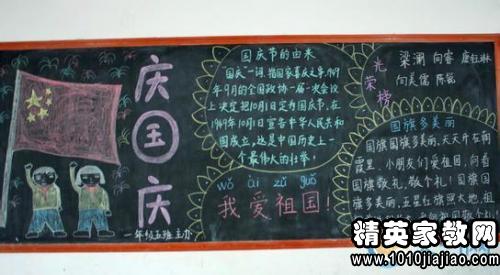 庆国庆
一年级五班 主办
国庆节的由来
"国庆"一词,指国家喜庆之事,1949
年9月的全国政协一届一次会议
上决定把10月1日定为国庆节,在
1949年10月1日宣告中华人民共和
国成立,这是中国历史上一
个最伟大的壮举!
wǒ ài zǔ guó
我爱祖国!
光荣榜
梁澜 向睿
向美儒 陈铭
国旗多美丽
国旗国旗多美丽,天天升在朝
霞里,小朋友们爱祖国,向着
国旗敬礼,敬个礼!国旗国
旗多美丽,五星红旗
精英家教网
www.1010jiajiao.com